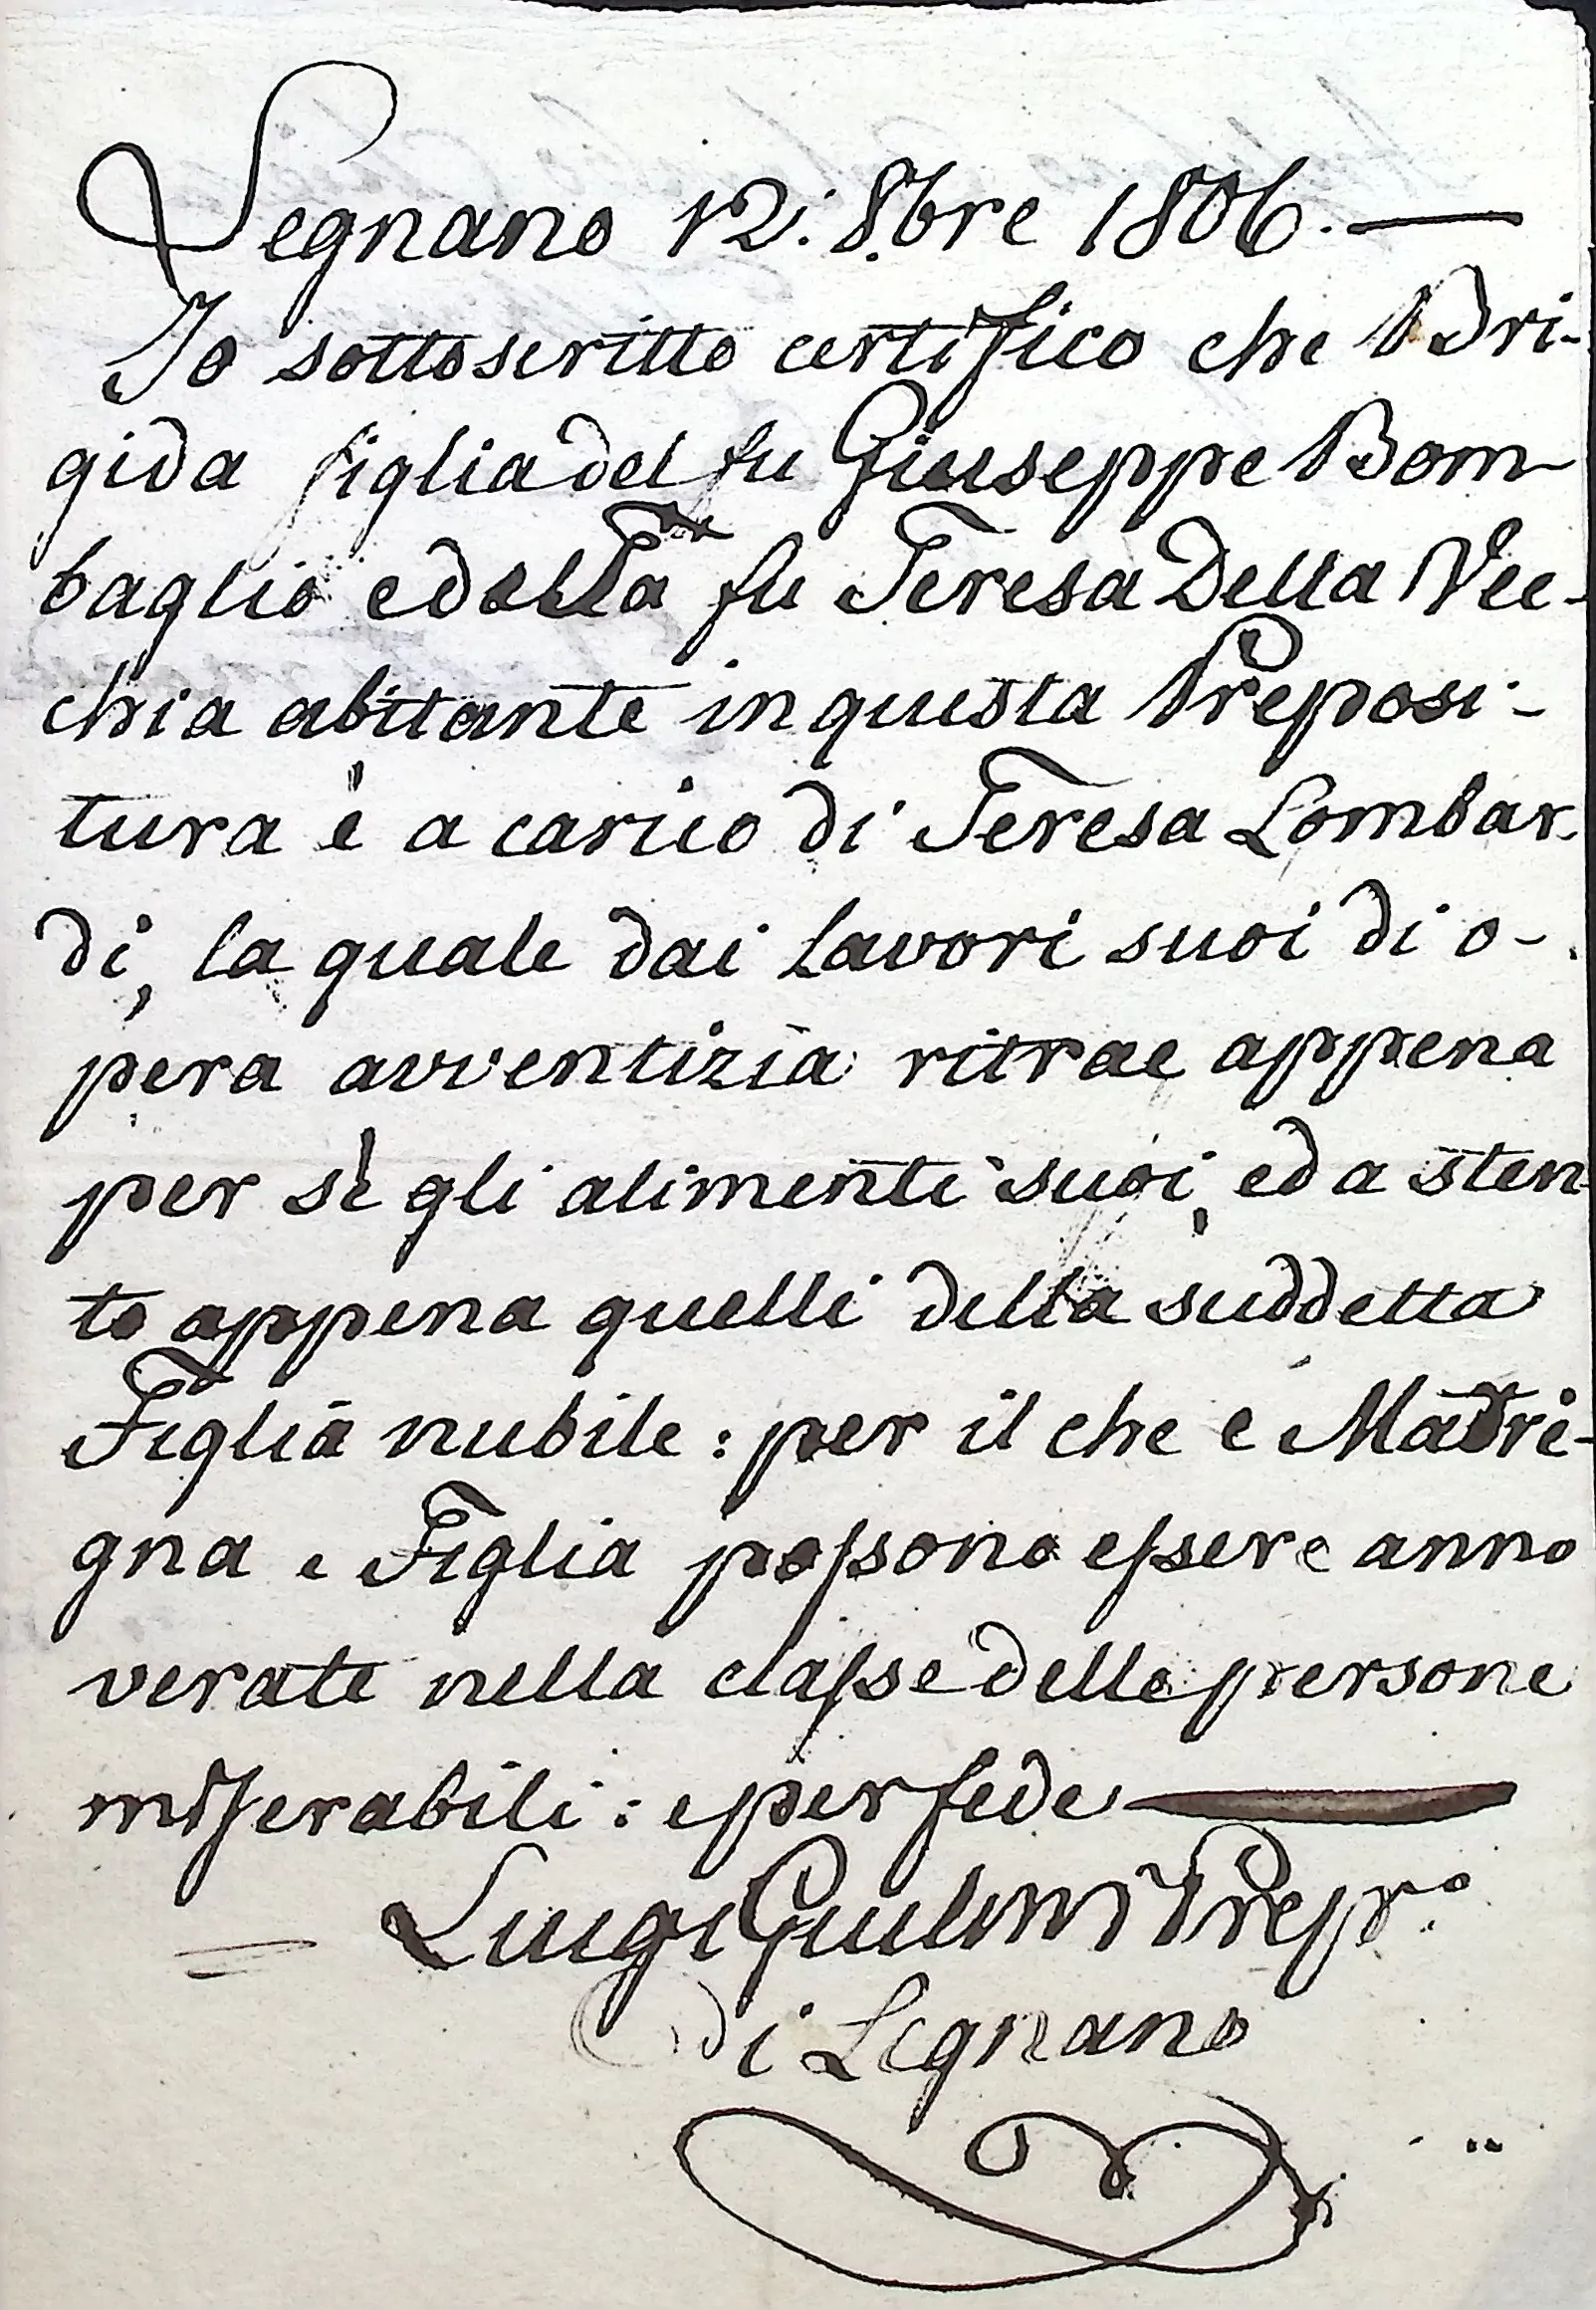 Legnano 12: 8bre 1806. —
Io sottoscritto certifico che Bri-
gida figlia del fu Giuseppe Bom
baglio e della fu Teresa Della Vec-
chia abitante in questa Preposi-
tura è a carico di Teresa Lombar-
di, la quale dai lavori suoi di o-
pera avventizia ritrae appena
per sè gli alimenti suoi, ed a sten
to appena quelli della suddetta
Figlia nubile: per il che e Madri-
gna e Figlia possono essere anno
verate nella classe delle persone
miserabili: e per fede —
Luigi Prep.°
di Legnano